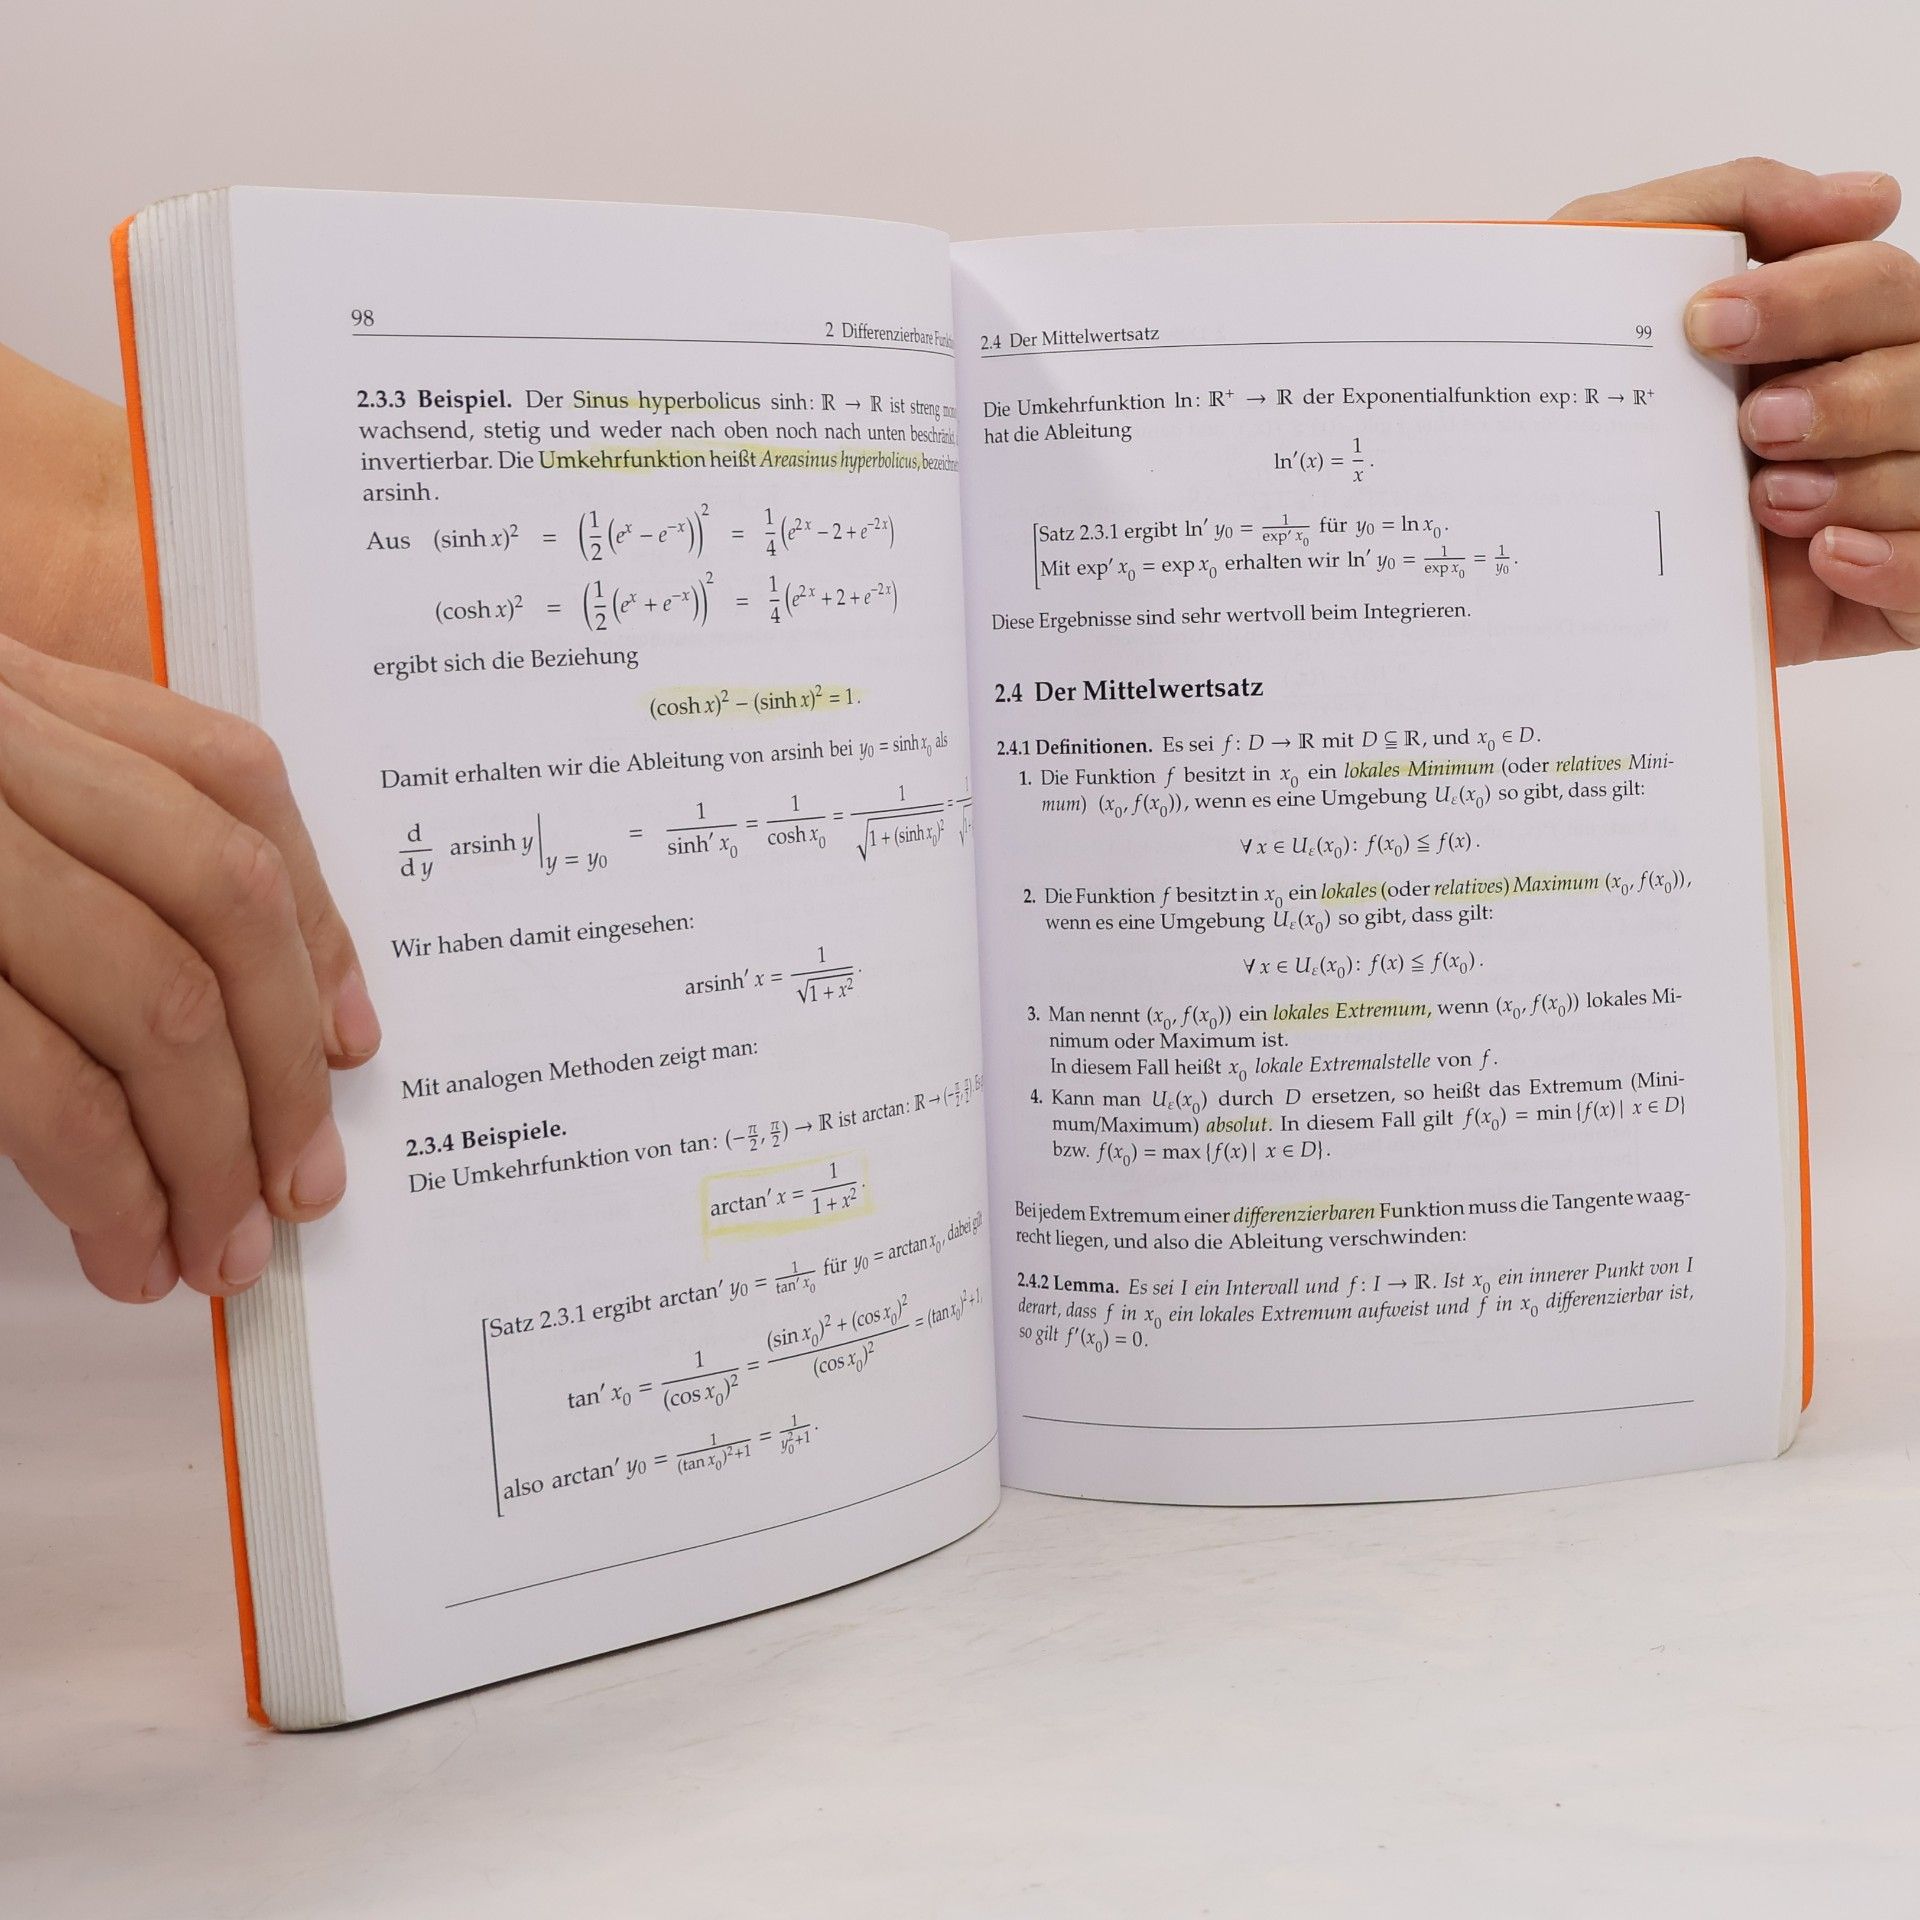 98
2 Differenzierbare
2.3.3 Beispiel. Der Sinus hyperbolicus sinh: ℝ → ℝ ist streng
wachsend, stetig und weder nach oben noch nach unten beschränkt
invertierbar. Die Umkehrfunktion heißt Areasinus hyperbolicus,
arsinh.
Aus (sinh x)² = (1/2 (eˣ − e⁻ˣ))² = 1/4 (e²ˣ − 2 + e⁻²ˣ)
(cosh x)² = (1/2 (eˣ + e⁻ˣ))² = 1/4 (e²ˣ + 2 + e⁻²ˣ)
ergibt sich die Beziehung
(cosh x)² − (sinh x)² = 1.
Damit erhalten wir die Ableitung von arsinh bei y₀ = sinh x₀ als
d/dy arsinh y |y = y₀ = 1/sinh′ x₀ = 1/cosh x₀ = 1/√(1 + (sinh x₀)²) =
Wir haben damit eingesehen:
arsinh′ x = 1/√(1 + x²).
Mit analogen Methoden zeigt man:
2.3.4 Beispiele.
Die Umkehrfunktion von tan: (−π/2, π/2) → ℝ ist arctan: ℝ → (−π/2, π/2).
arctan′ x = 1/(1 + x²).
[Satz 2.3.1 ergibt arctan′ y₀ = 1/tan′ x₀ für y₀ = arctan x₀, dabei gilt
tan′ x₀ = 1/(cos x₀)² = ((sin x₀)² + (cos x₀)²)/(cos x₀)² = (tan x₀)² + 1,
also arctan′ y₀ = 1/((tan x₀)²+1) = 1/(y₀²+1).
2.4 Der Mittelwertsatz 99
Die Umkehrfunktion ln: ℝ⁺ → ℝ der Exponentialfunktion exp: ℝ → ℝ⁺
hat die Ableitung
ln′(x) = 1/x.
[Satz 2.3.1 ergibt ln′ y₀ = 1/exp′ x₀ für y₀ = ln x₀.
Mit exp′ x₀ = exp x₀ erhalten wir ln′ y₀ = 1/exp x₀ = 1/y₀. ]
Diese Ergebnisse sind sehr wertvoll beim Integrieren.
2.4 Der Mittelwertsatz
2.4.1 Definitionen. Es sei f: D → ℝ mit D ⊆ ℝ, und x₀ ∈ D.
1. Die Funktion f besitzt in x₀ ein lokales Minimum (oder relatives Mini-
mum) (x₀, f(x₀)), wenn es eine Umgebung Uε(x₀) so gibt, dass gilt:
∀ x ∈ Uε(x₀): f(x₀) ≦ f(x).
2. Die Funktion f besitzt in x₀ ein lokales (oder relatives) Maximum (x₀, f(x₀)),
wenn es eine Umgebung Uε(x₀) so gibt, dass gilt:
∀ x ∈ Uε(x₀): f(x) ≦ f(x₀).
3. Man nennt (x₀, f(x₀)) ein lokales Extremum, wenn (x₀, f(x₀)) lokales Mi-
nimum oder Maximum ist.
In diesem Fall heißt x₀ lokale Extremalstelle von f.
4. Kann man Uε(x₀) durch D ersetzen, so heißt das Extremum (Mini-
mum/Maximum) absolut. In diesem Fall gilt f(x₀) = min{f(x) | x ∈ D}
bzw. f(x₀) = max{f(x) | x ∈ D}.
Bei jedem Extremum einer differenzierbaren Funktion muss die Tangente waag-
recht liegen, und also die Ableitung verschwinden:
2.4.2 Lemma. Es sei I ein Intervall und f: I → ℝ. Ist x₀ ein innerer Punkt von I
derart, dass f in x₀ ein lokales Extremum aufweist und f in x₀ differenzierbar ist,
so gilt f′(x₀) = 0.